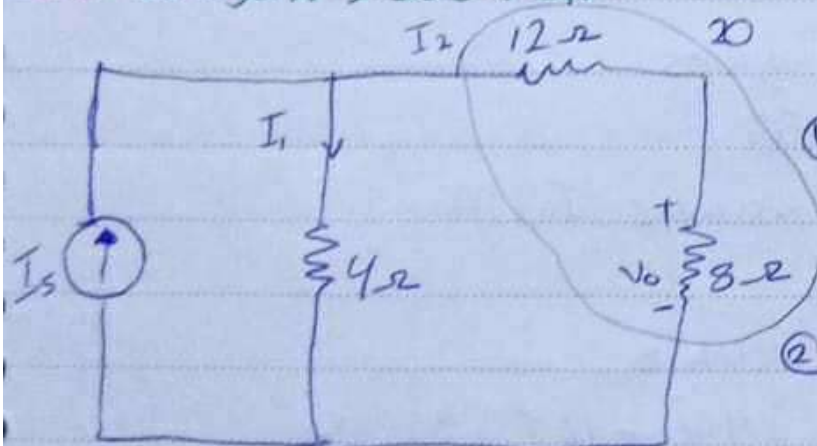 I₂ 12Ω 20
I₁
Is
4Ω
+
Vo 8Ω
-
①
②